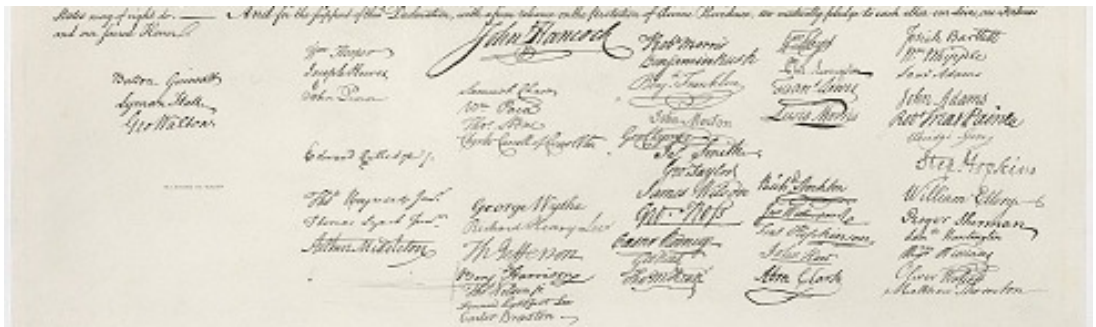 States may of right do. — And for the support of this Declaration, with a firm reliance on the protection of divine Providence, we mutually pledge to each other our Lives, our Fortunes
and our sacred Honor.
Button Gwinnett
Lyman Hall
Geo Walton
Wm Hooper
Joseph Hewes
John Penn
Edward Rutledge
Thos Heyward Junr.
Thomas Lynch Junr.
Arthur Middleton
John Hancock
Samuel Chase
Wm Paca
Thos Stone
Charles Carroll of Carrollton
George Wythe
Richard Henry Lee
Th Jefferson
Benj Harrison
Thos Nelson jr
Francis Lightfoot Lee
Carter Braxton
Robt Morris
Benjamin Rush
Benj Franklin
John Morton
Geo Clymer
Jas Smith
Geo Taylor
James Wilson
Geo Ross
Caesar Rodney
Geo Read
Tho M:Kean
Wm Floyd
Phil Livingston
Frans Lewis
Lewis Morris
Richd Stockton
Jno Witherspoon
Fras Hopkinson
John Hart
Abra Clark
Josiah Bartlett
Wm Whipple
Saml Adams
John Adams
Robt Treat Paine
Elbridge Gerry
Step Hopkins
William Ellery
Roger Sherman
Saml Huntington
Wm Williams
Oliver Wolcott
Matthew Thornton